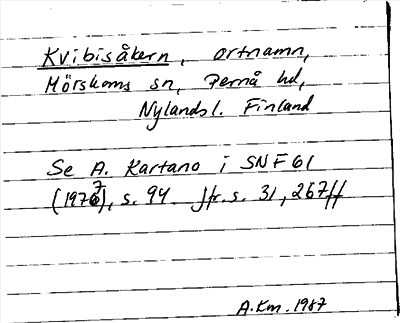 Kvibisåkern, ortnamn,
Mörskoms sn, Pernå hd,
Nylands l. Finland
Se A. Kartano i SNF 61
(1977), s. 94. Jfr. s. 31, 267 ff
A.Km. 1987